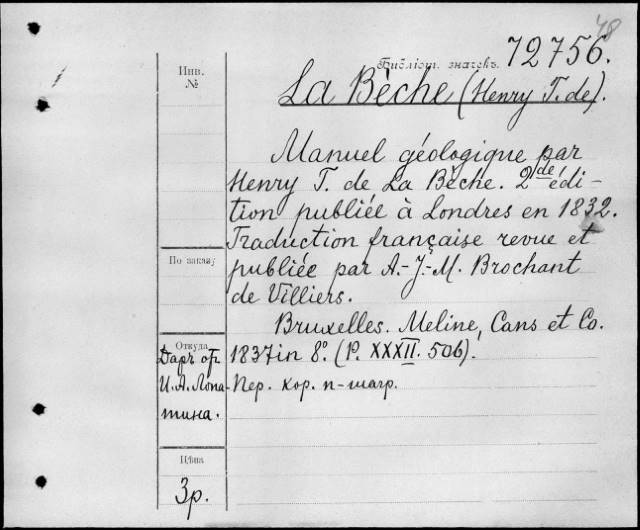 48
Библіот. значекъ. 72756.
Инв.
№
La Bèche (Henry T. de).
Manuel géologique par
Henry T. de La Bèche. 2de édi-
tion publiée à Londres en 1832.
Traduction française revue et
По заказу
publiée par A.-J.-M. Brochant
de Villiers.
Bruxelles. Meline, Cans et Co.
Откуда
1837 in 8°. (P. XXXII. 506).
Даръ от
И. А. Лопа-
тина.
Пер. кор. п-шагр.
Цѣна
3р.